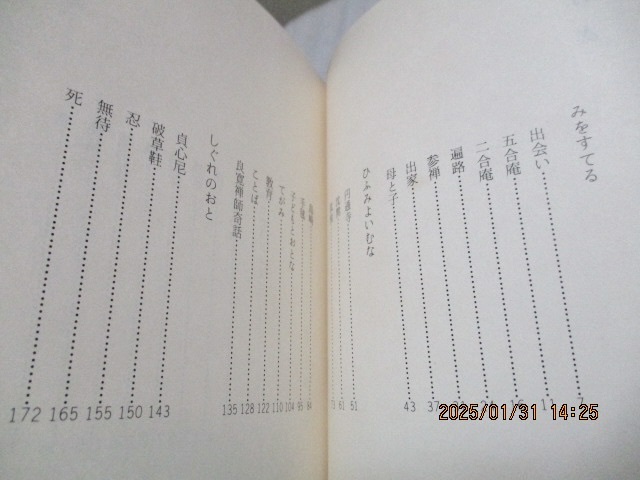 みをすてる
出会い 7
五合庵 11
二合庵
遍路
参禅
出家 37
母と子 43
ひふみよいむな
円通寺 51
61
子どもとおとな 104
てがみ 110
教育 122
ことば 128
良寛禅師奇話 135
しぐれのおと
貞心尼 143
破草鞋 150
忍 155
無待 165
死 172
2025/01/31 14:25